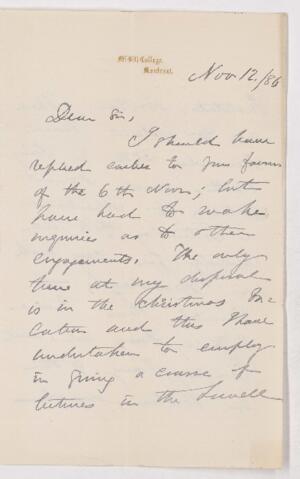 McGill College,
Montreal.
Nov. 12./86
Dear Sir,
I should have
replied earlier to your favour
of the 6th Nov.; but
have had to make
inquiries as to other
engagements. The only
time at my disposal
is in the Christmas Va-
cation and this I have
undertaken to employ
in giving a course of
lectures in the Lowell